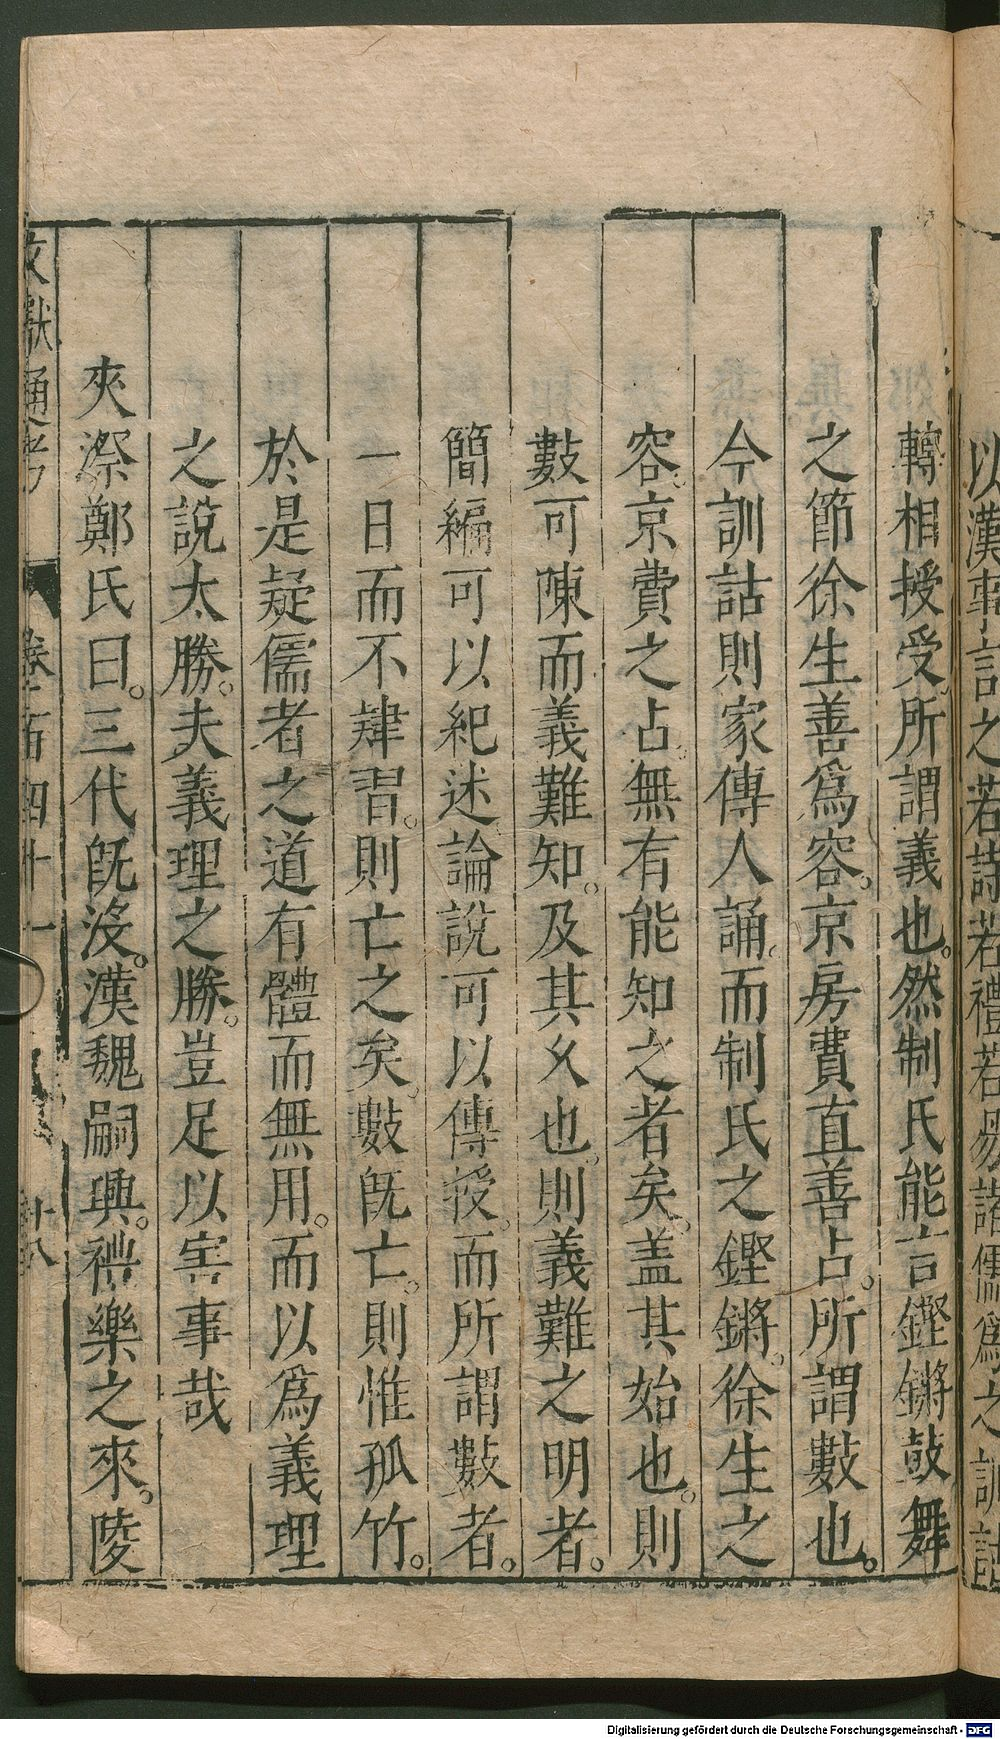 以漢事言之若詩若禮若易諸儒爲之訓詁
轉相授受所謂義也。然制氏能言鏗鏘鼓舞
之節徐生善爲容。京房費直善占。所謂數也。
今訓詁則家傳人誦。而制氏之鏗鏘。徐生之
容。京費之占。無有能知之者矣。盖其始也。則
數可陳而義難知。及其乆也。則義難之明者。
簡編可以紀述論說可以傳授。而所謂數者。
一日而不肄習。則亡之矣。數旣亡。則惟孤竹。
於是疑儒者之道有體而無用。而以爲義理
之說太勝。夫義理之勝。豈足以害事哉
夾漈鄭氏曰。三代旣沒。漢魏嗣興。禮樂之來。陵
文獻通考 卷一百四十一 十八
Digitalisierung gefördert durch die Deutsche Forschungsgemeinschaft - DFG